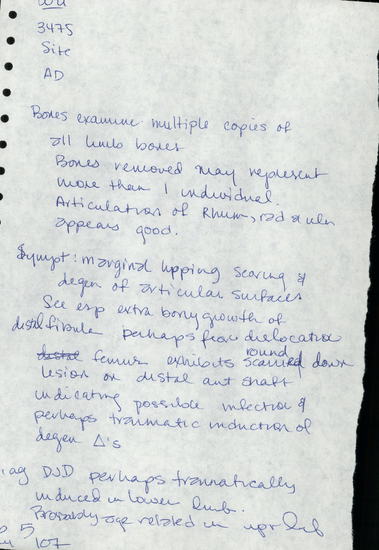 3475
Site
AD
Bones examine multiple copies of
all limb bones
Bones removed may represent
more than 1 individual.
Articulation of Rhum, rad & uln
appears good.
Sympt: marginal lipping scaring &
degen of articular surfaces
See esp extra bony growth of
distal fibula perhaps from dislocation
distal femur exhibits round scarred down
lesion on distal ant shaft
indicating possible infection &
perhaps traumatic induction of
degen Δ's
DJD perhaps traumatically
induced in lower limb.
Probably age related in upr limb
5
107